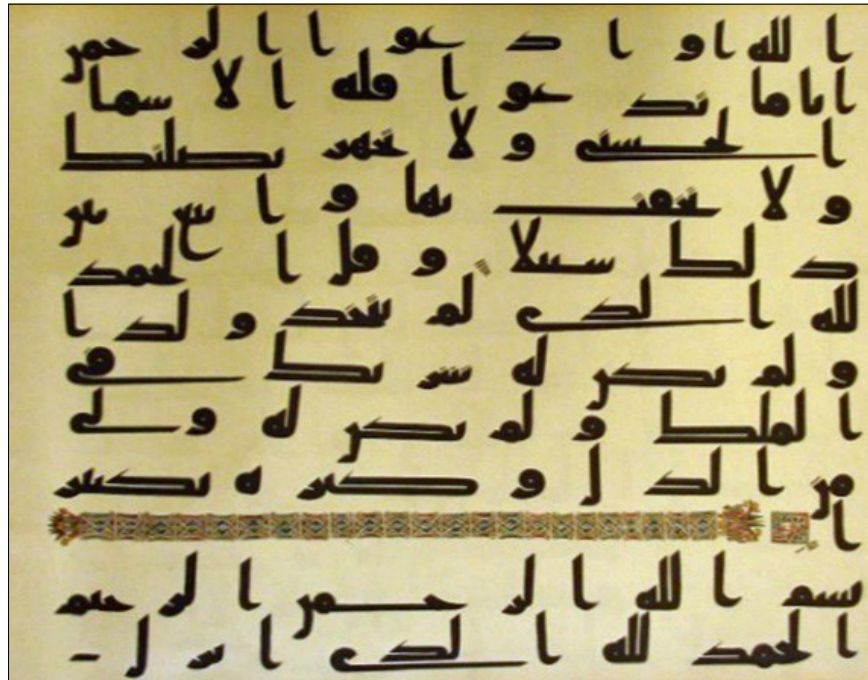 الله او ادعوا الرحمن
ايا ما تدعوا فله الاسما
الحسنى ولا تجهر بصلتك
ولا تخفت بها وابتغ بين
ذلك سبيلا وقل الحمد
لله الذي لم يتخذ ولدا
ولم يكن له شريك في
الملك ولم يكن له ولي
من الذل وكبره تكبير
ا
بسم الله الرحمن الرحيم
الحمد لله الذي انزل